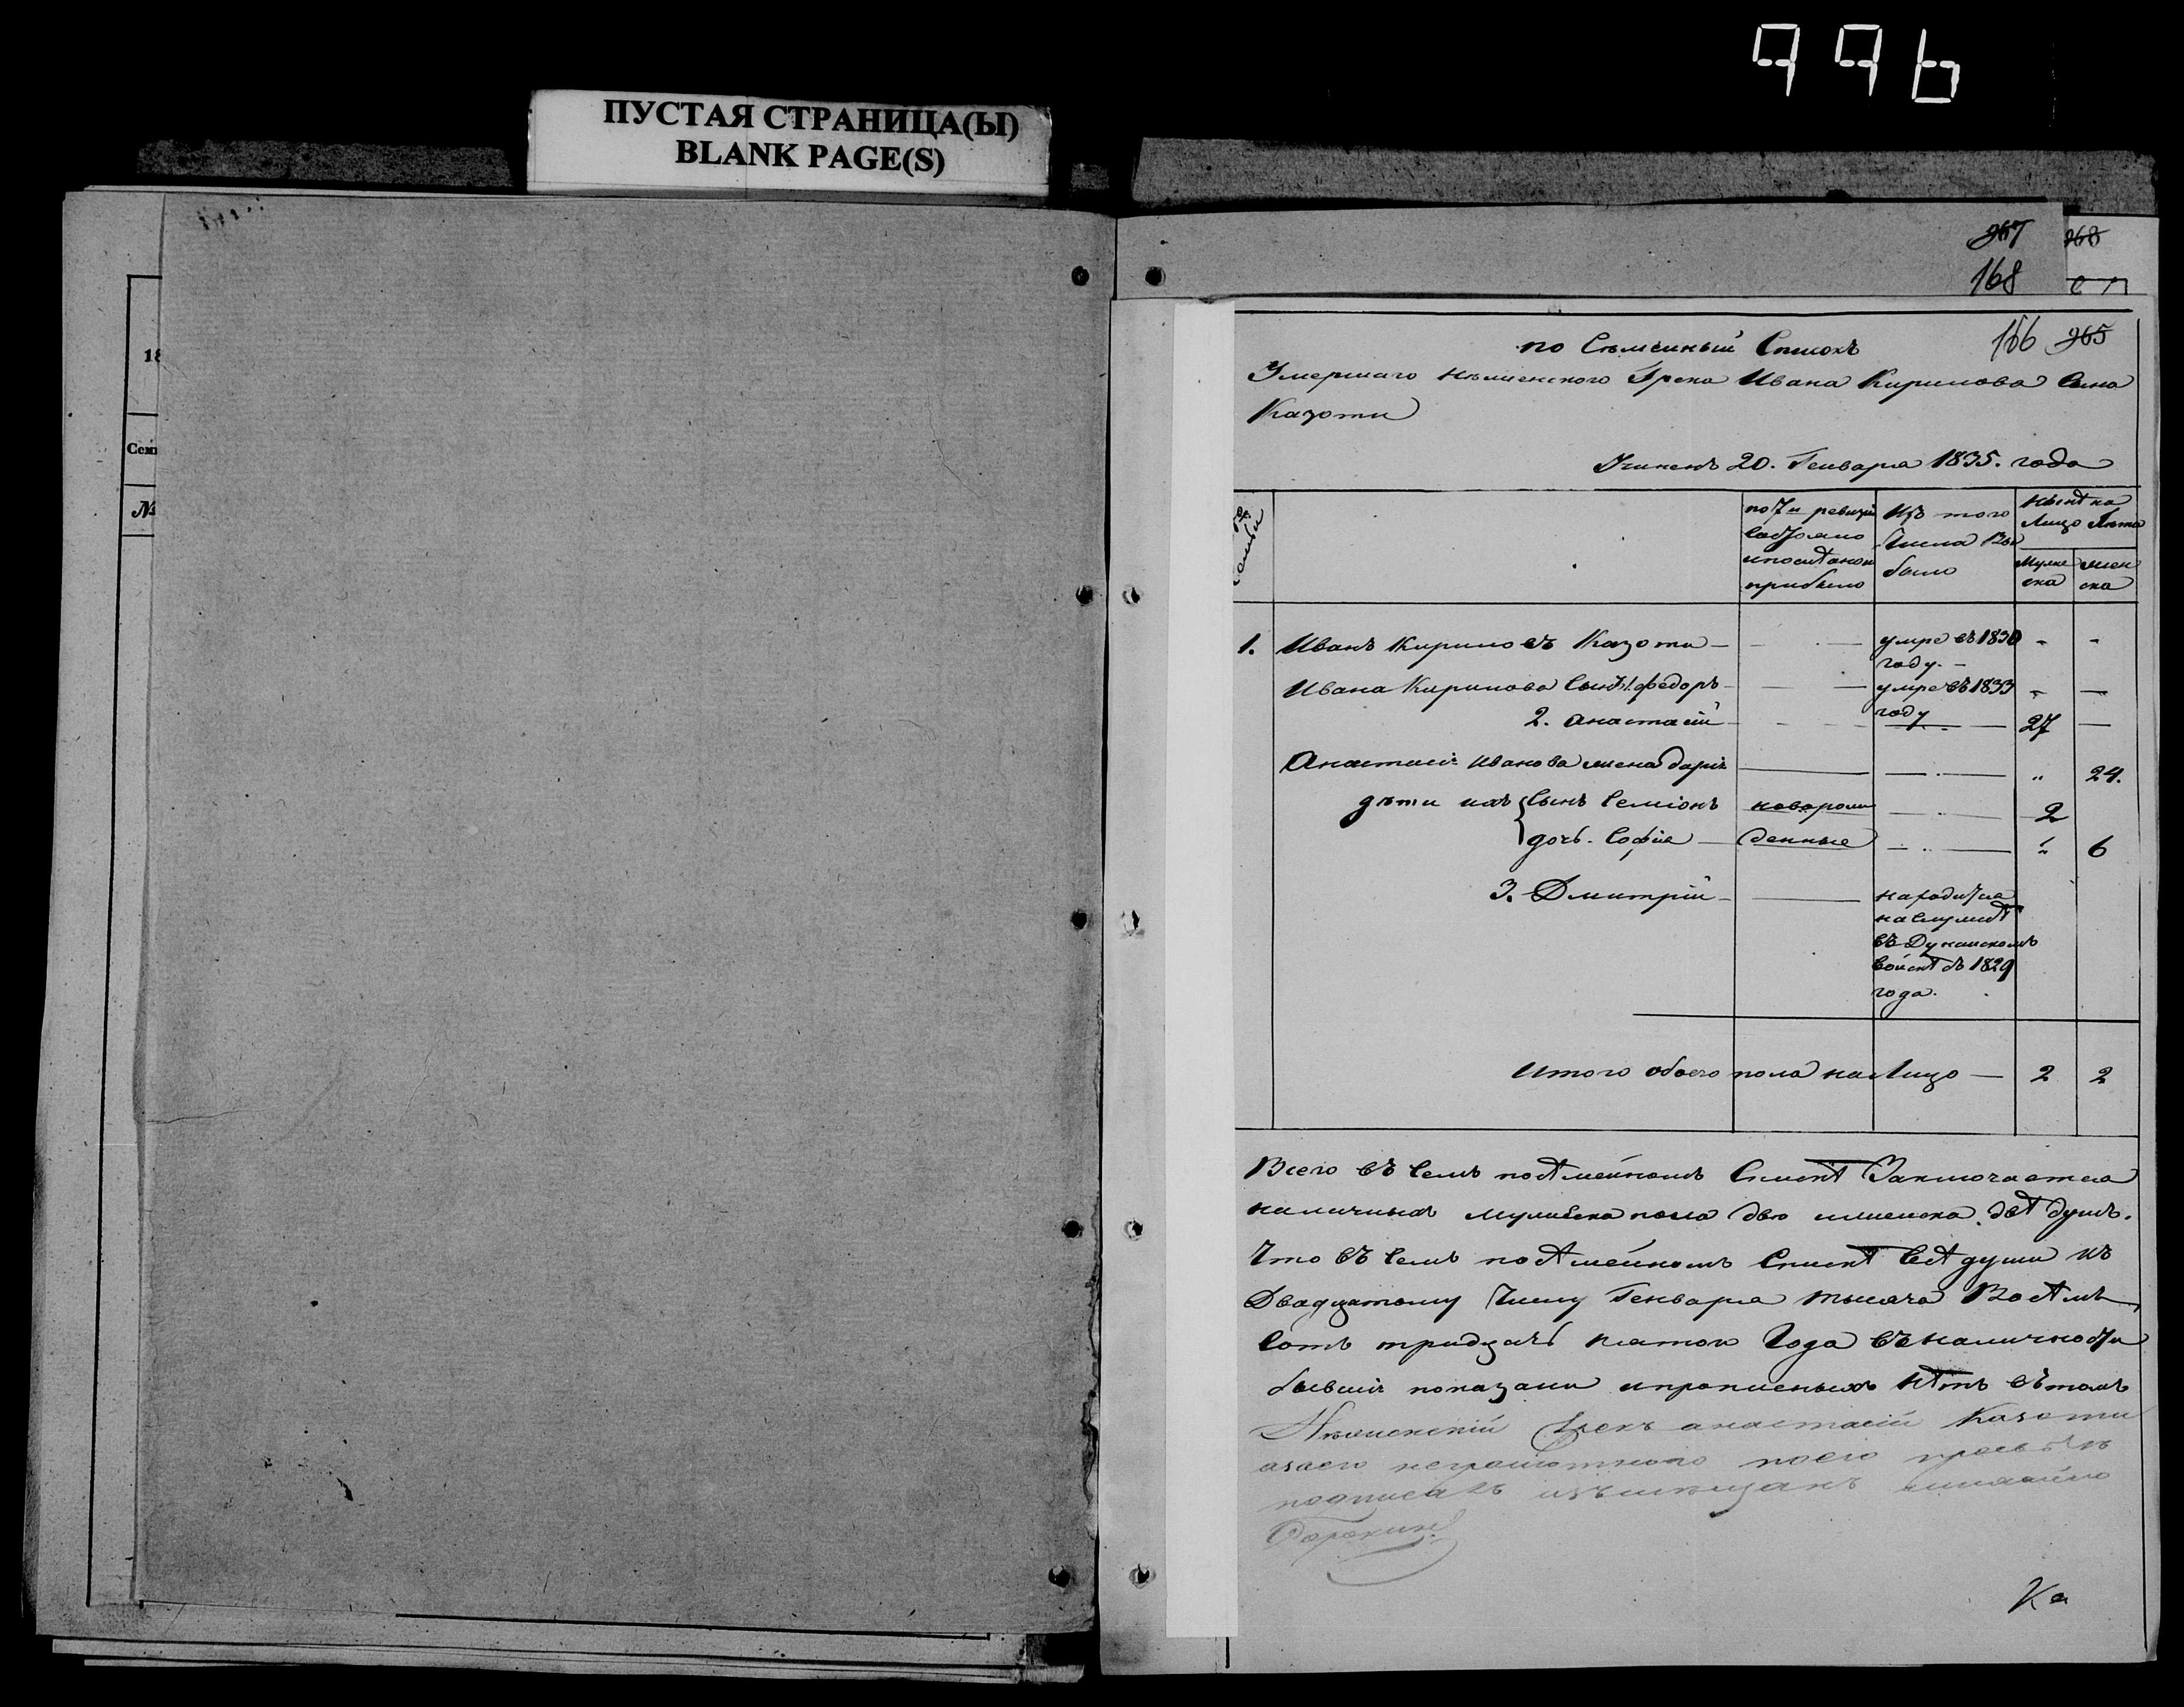 996
ПУСТАЯ СТРАНИЦА(Ы)
BLANK PAGE(S)
18
Сем
№
367 368
168
166 365
по Сѣмейный Списокъ
Умершаго Нѣжинского Грека Ивана Кирилова Сина
Казоти
Учиненъ 20. Генваря 1835. года
семьи
по 7й ревизіи состояло и послѣ оной прибыло
Изъ того Числа Выбыло
нынѣ на Лицо Лѣта
Мужеска
женска
1. Иванъ Кириловъ Казоти — умре въ 1830 году. - -
Ивана Кирилова Сынъ 1. федоръ — умре въ 1833 году - —
2. Анастасій — 27 —
Анастасія Иванова жена дарія — „ 24.
дѣти ихъ Сынъ Семіонъ новорож — 2
дочь. Софія — денные — „ 6
3. Дмитрій — находится на Службѣ въ Дунайскомъ войскѣ съ 1829 года.
Итого обоего пола на Лицо — 2 2
Всего въ Семъ посѣмейномъ Спискѣ Заключается
наличныхъ мужеска пола двѣ и женска двѣ душъ.
Что въ Семъ посѣмейномъ Спискѣ Всѣ души къ
Двадцатому Числу Генваря тысяча Восѣмь
Сотъ тридцать пятого Года въ наличности
бывшія показаны и прописныхъ нѣтъ въ томъ
Нѣжинскій Грекъ анастасій Казоти
а заего неграмотного поего прозбѣ
подписалъ изъ мѣщанъ
Ка